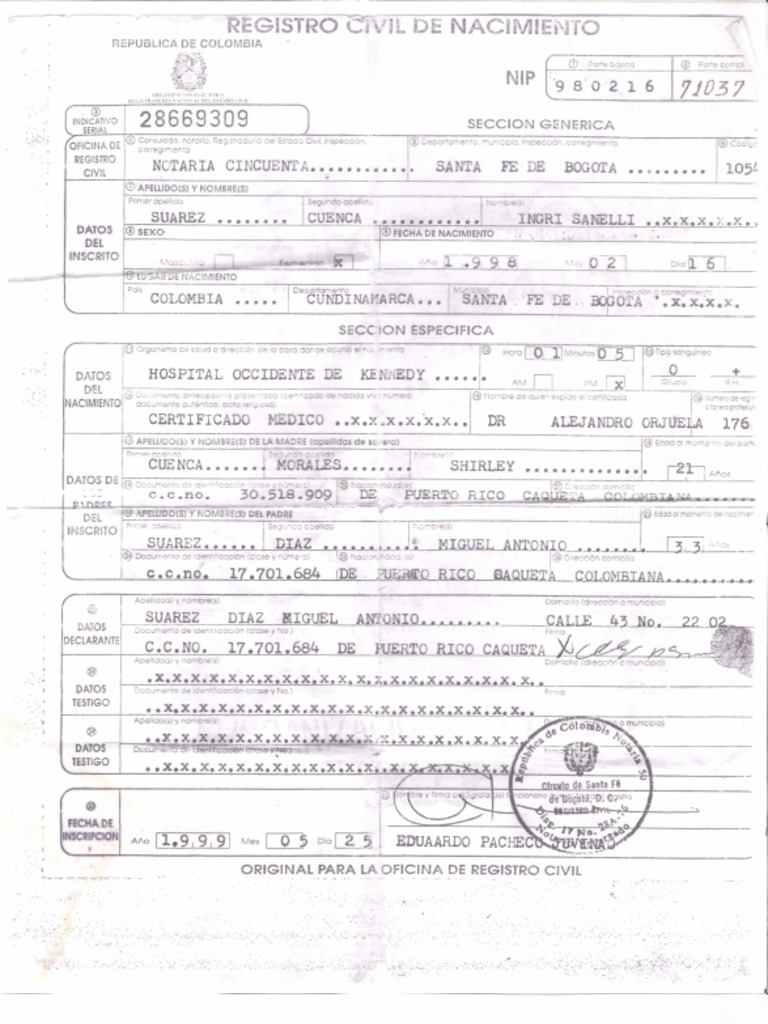 REGISTRO CIVIL DE NACIMIENTO
REPUBLICA DE COLOMBIA
ORGANIZACION ELECTORAL
REGISTRADURIA NACIONAL DEL ESTADO CIVIL
NIP
① Parte básica
② Parte compl.
980216
71037
③ INDICATIVO SERIAL
28669309
SECCION GENERICA
OFICINA DE REGISTRO CIVIL
④ Consulado, notaría, Registraduría del Estado Civil, Inspección, corregimiento
⑤ Departamento, municipio, inspección, corregimiento
⑥ Código
NOTARIA CINCUENTA............ SANTA FE DE BOGOTA ......... 1054
DATOS DEL INSCRITO
⑦ APELLIDO(S) Y NOMBRE(S)
Primer apellido
Segundo apellido
Nombre(s)
SUAREZ ........ CUENCA ............ INGRI SANELLI ..x.x.x.x.
⑧ SEXO
⑨ FECHA DE NACIMIENTO
Masculino
Femenino x
Año 1.998 Mes 02 Día 16
⑩ LUGAR DE NACIMIENTO
País
Departamento
Municipio
Inspección o corregimiento
COLOMBIA ..... CUNDINAMARCA... SANTA FE DE. BOGOTA .x.x.x.x.
SECCION ESPECIFICA
DATOS DEL NACIMIENTO
⑪ Organismo de salud o dirección de la casa donde ocurrió el nacimiento
Hora 01 Minutos 05
Tipo sanguíneo
HOSPITAL OCCIDENTE DE KENNEDY ......
AM
PM x
O +
Grupo R.H.
Documento antecedente presentado (certificado de nacido vivo número, documento auténtico, acta religiosa)
Nombre de quien expide el certificado
CERTIFICADO MEDICO ..x.x.x.x.x.. DR ALEJANDRO ORJUELA 176
DATOS DE PADRES DEL INSCRITO
APELLIDO(S) Y NOMBRE(S) DE LA MADRE (apellidos de soltera)
Edad al momento del parto
Primer apellido
Segundo apellido
Nombre(s)
CUENCA....... MORALES........ SHIRLEY ............... 21 Años
Documento de identificación (clase y número)
Nacionalidad
Dirección domicilio
c.c.no. 30.518.909 DE PUERTO RICO CAQUETA COLOMBIANA.........
APELLIDO(S) Y NOMBRE(S) DEL PADRE
Edad al momento de nacimien
Primer apellido
Segundo apellido
Nombre(s)
SUAREZ...... DIAZ ............ MIGUEL ANTONIO ........ 33 Años
Documento de identificación (clase y número)
Dirección domicilio
c.c.no. 17.701.684 DE PUERTO RICO CAQUETA COLOMBIANA............
DATOS DECLARANTE
Apellido(s) y nombre(s)
Domicilio (dirección o municipio)
SUAREZ DIAZ MIGUEL ANTONIO......... CALLE 43 No. 22 02
Documento de identificación (clase y No.)
Firma
C.C.NO. 17.701.684 DE PUERTO RICO CAQUETA
DATOS TESTIGO
Apellido(s) y nombre(s)
Domicilio (dirección o municipio)
.x.x.x.x.x.x.x.x.x.x.x.x.x.x.x.x.x.x.x.x.x..
Documento de identificación (clase y No.)
Firma
..x.x.x.x.x.x.x.x.x.x.x.x.x.x.x.x.x.x.x.x..
DATOS TESTIGO
Apellido(s) y nombre(s)
o municipio)
..x.x.x.x.x.x.x.x.x.x.x.x.x.x.x.x.x.x.x.x.
Documento de identificación (clase y No.)
..x.x.x.x.x.x.x.x.x.x.x.x.x.x.x.x.x.x.x.x.
República de Colombia Notaría 50
Círculo de Santa Fé de Bogotá, D. C.
REGISTRO CIVIL
FECHA DE INSCRIPCION
Nombre y firma
Año 1.999 Mes 05 Día 25
EDUAARDO PACHECO JUVENAL
ORIGINAL PARA LA OFICINA DE REGISTRO CIVIL